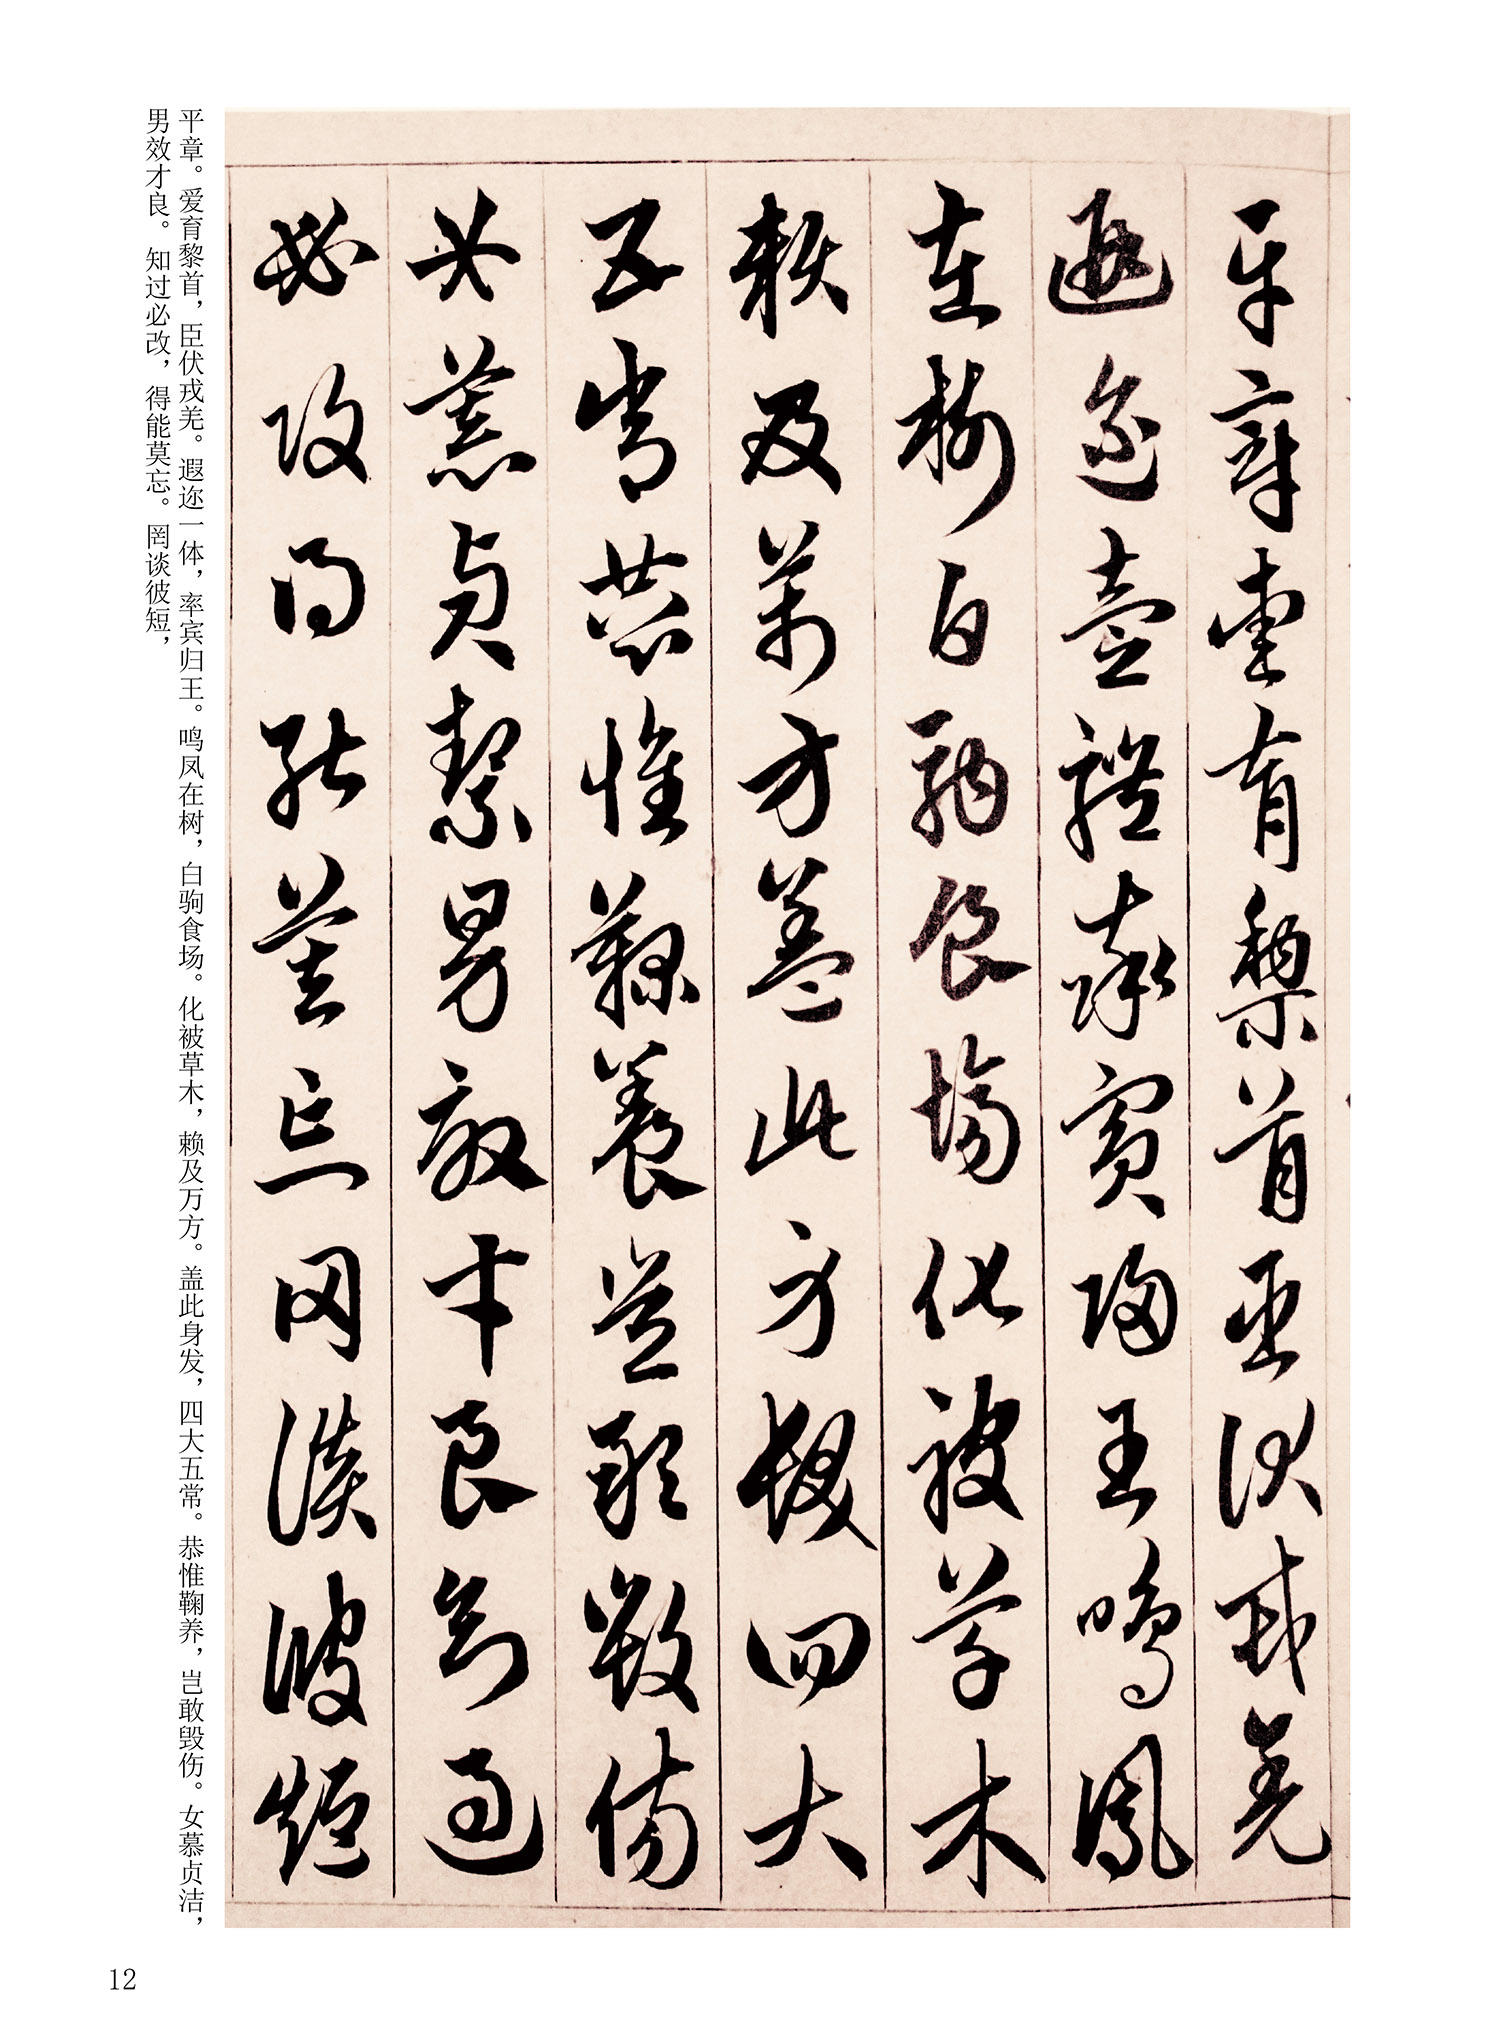 平章爱育黎首臣伏戎羌
遐迩壹体率宾归王鸣凤
在树白驹食场化被草木
赖及万方盖此身发四大
五常恭惟鞠养岂敢毁伤
女慕贞洁男效才良知过
必改得能莫忘罔谈彼短
平章。爱育黎首，臣伏戎羌。遐迩一体，率宾归王。鸣凤在树，白驹食场。化被草木，赖及万方。盖此身发，四大五常。恭惟鞠养，岂敢毁伤。女慕贞洁，
男效才良。知过必改，得能莫忘。罔谈彼短，
12